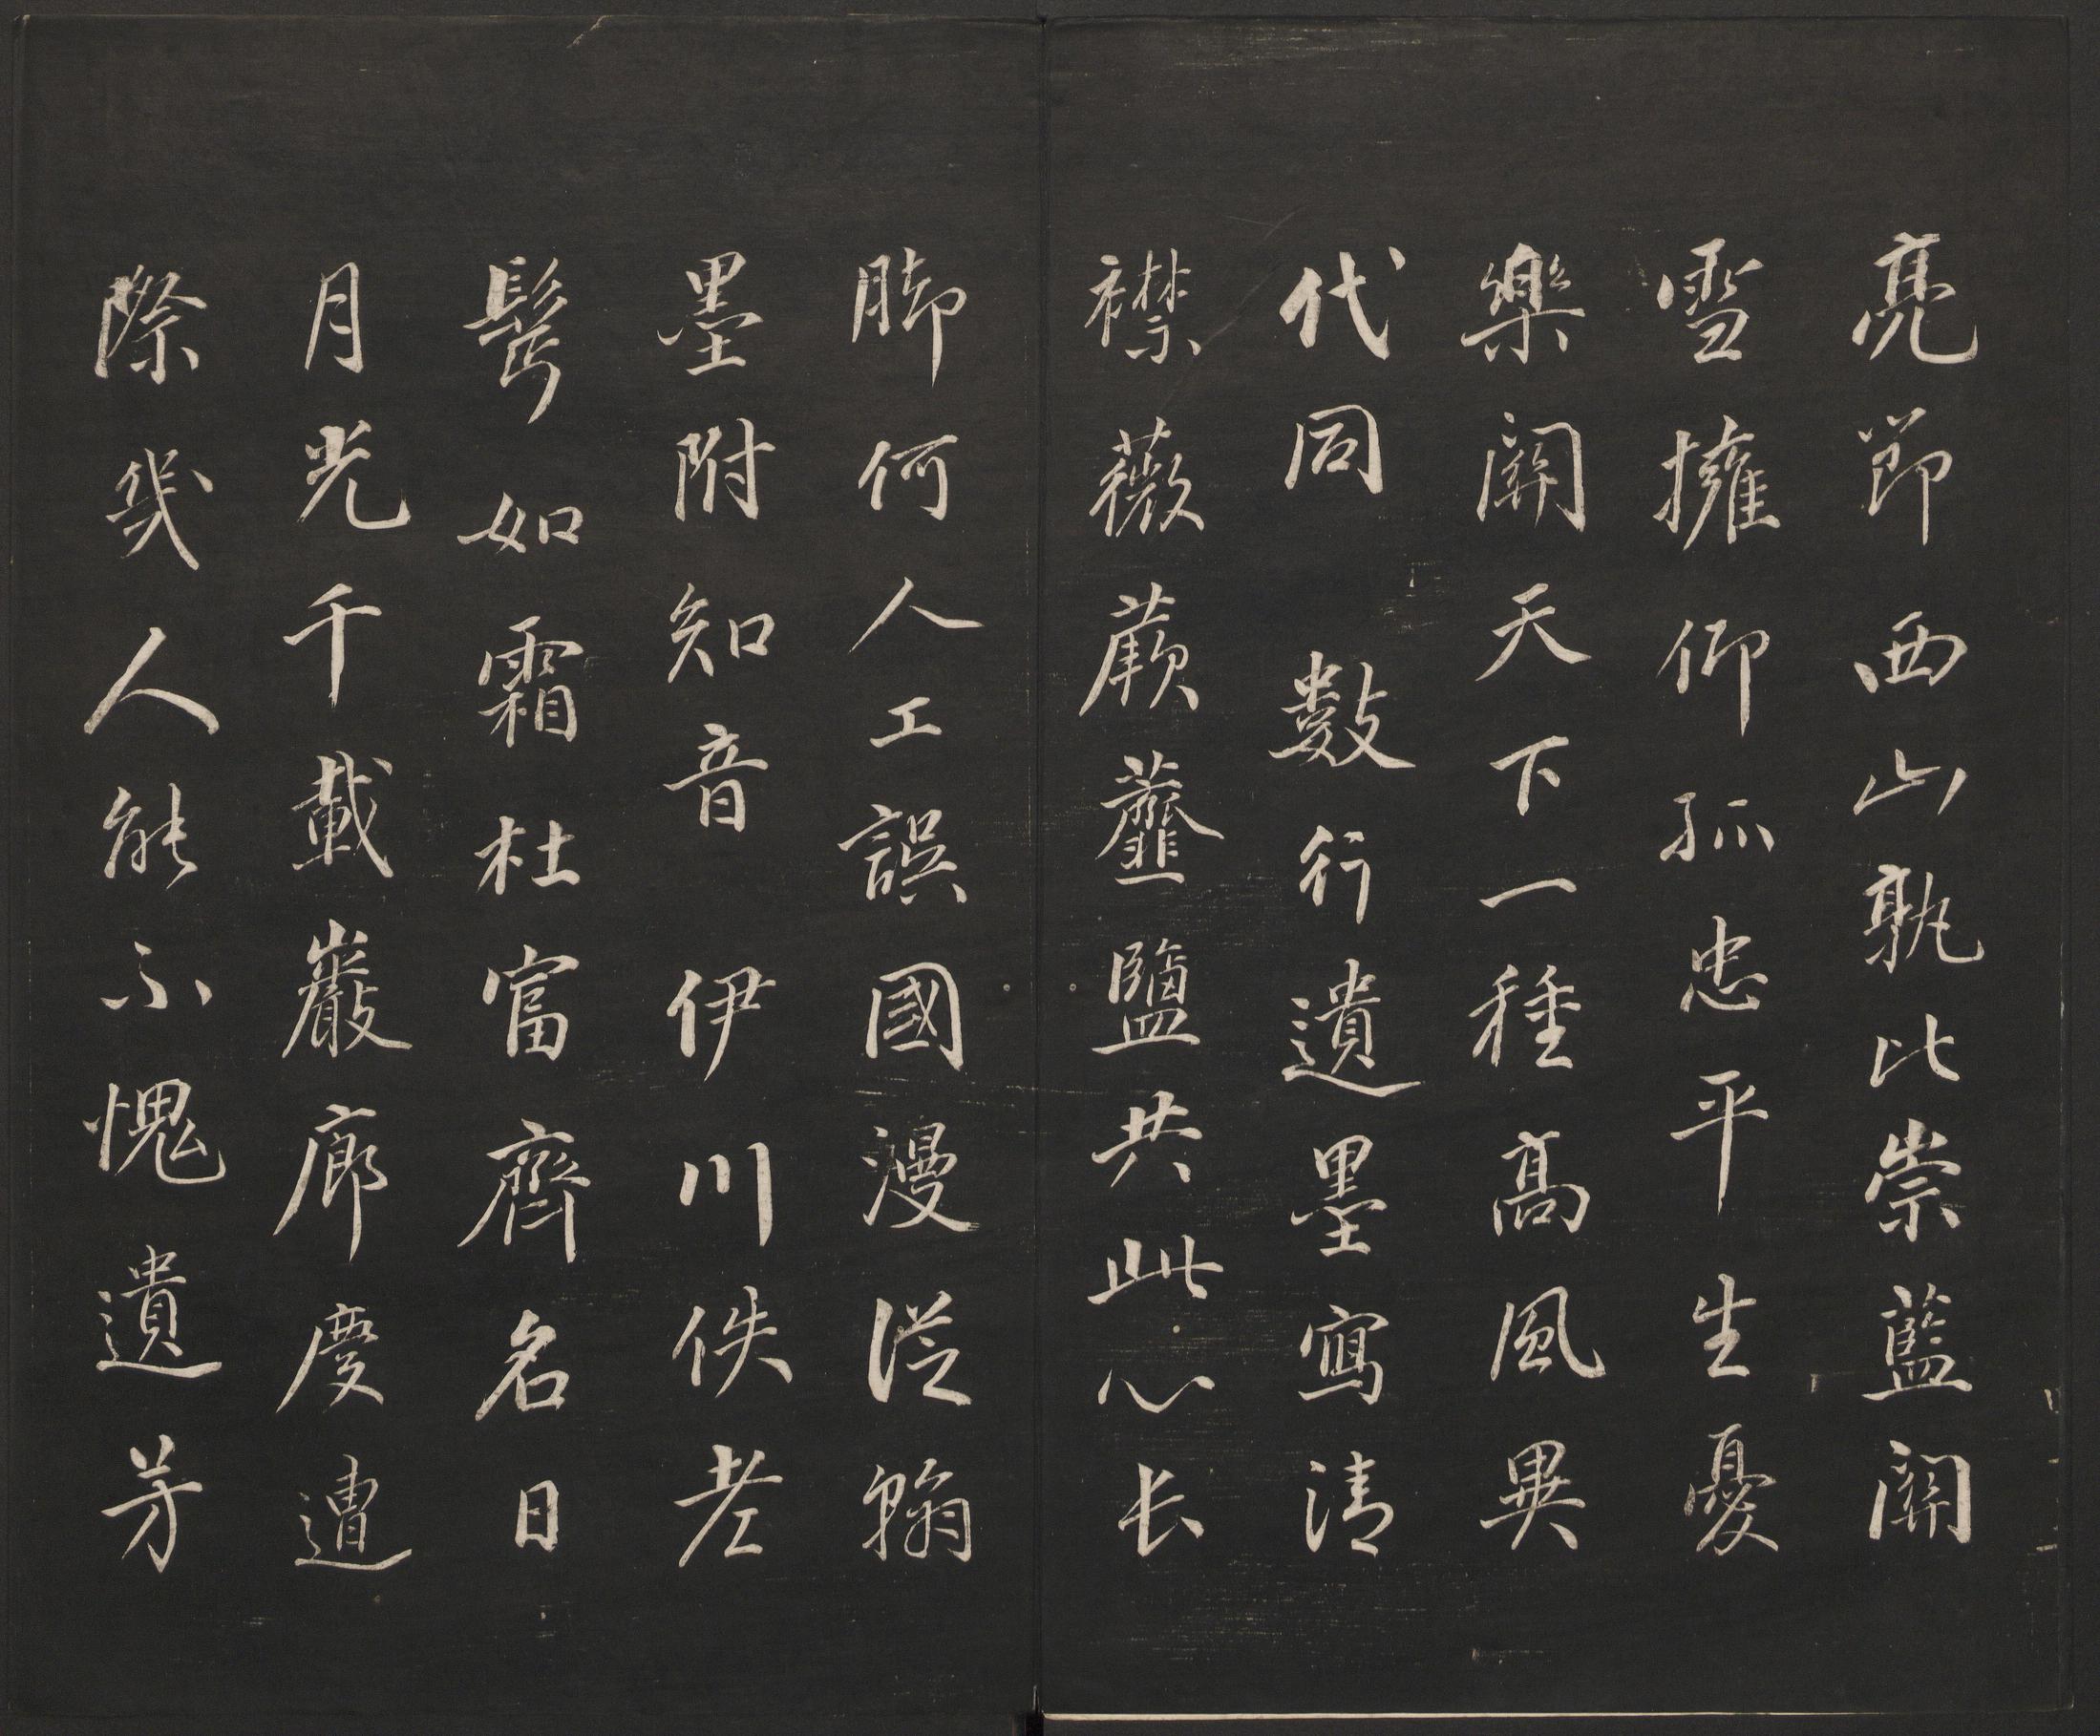 亮節西山孰比崇藍關
雪擁仰孤忠平生憂
樂關天下一種高風異
代同　數行遺墨寫清
襟薇蕨虀鹽共此心長
脚何人工誤國漫從翰
墨附知音　伊川佚老
髩如霜杜富齊名日
月光千載巖廊慶遭
際幾人能不愧遺芳